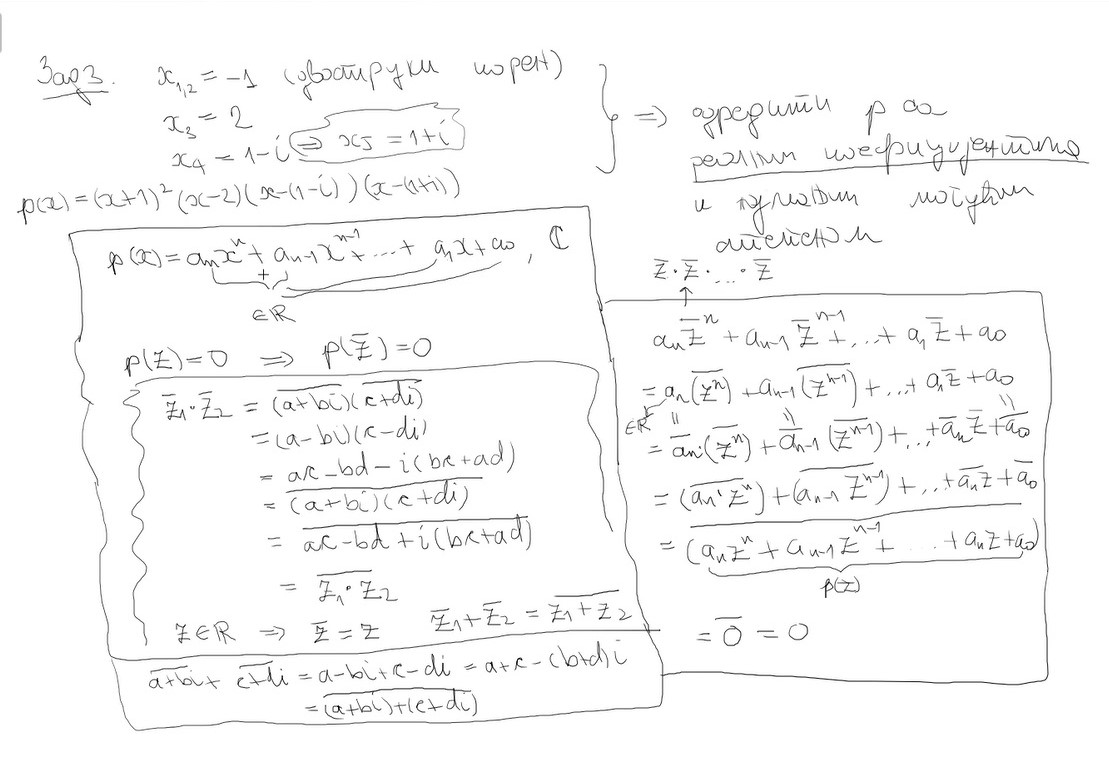 Зад 3. x₁,₂ = -1 (двоструки корен)
x₃ = 2
x₄ = 1-i ⇒ x₅ = 1+i
⇒ одредити p са
реалним коефицијентима
и
могућим
p(x) = (x+1)² (x-2)(x-(1-i))(x-(1+i))
p(x) = aₙxⁿ + aₙ₋₁xⁿ⁻¹ + ... + a₁x + a₀, ℂ
∈ℝ
p(z) = 0 ⇒ p(z̅) = 0
z̅₁·z̅₂ = \overline{(a+bi)}\overline{(c+di)}
= (a-bi)(c-di)
= ac-bd-i(bc+ad)
= \overline{(a+bi)(c+di)}
= \overline{ac-bd+i(bc+ad)}
= \overline{z₁·z₂}
z∈ℝ ⇒ z̅ = z z̅₁+z̅₂ = \overline{z₁+z₂}
\overline{a+bi} + \overline{c+di} = a-bi+c-di = a+c-(b+d)i
= \overline{(a+bi)+(c+di)}
z̅·z̅·...·z̅
↑
aₙz̅ⁿ + aₙ₋₁z̅ⁿ⁻¹ + ... + a₁z̅ + a₀
= aₙ(\overline{zⁿ}) + aₙ₋₁(\overline{zⁿ⁻¹}) + ... + a₁z̅ + a₀
∈ℝ
= a̅ₙ·(\overline{zⁿ}) + a̅ₙ₋₁(\overline{zⁿ⁻¹}) + ... + a̅ₙz̅ + a̅₀
= (\overline{aₙ·zⁿ}) + (\overline{aₙ₋₁zⁿ⁻¹}) + ... + \overline{aₙz} + a̅₀
= \overline{(aₙzⁿ + aₙ₋₁zⁿ⁻¹ + ... + aₙz + a₀)}
p(z)
= 0̅ = 0